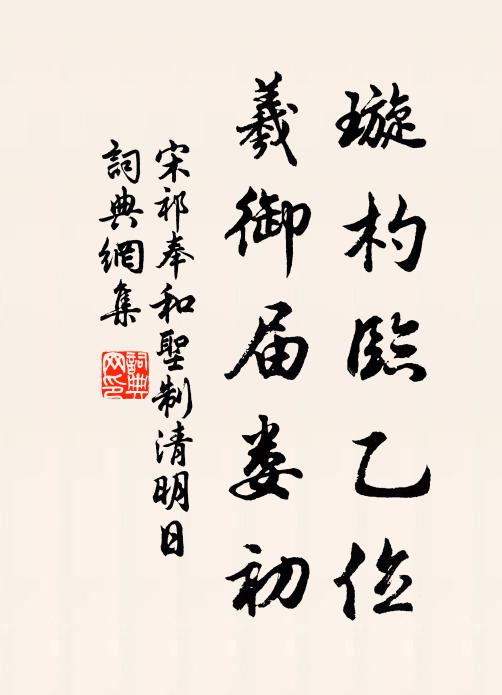 璇杓臨乙位
羲御届娄初
宋祁奉和聖制清明日
詞典網集
詞典网印